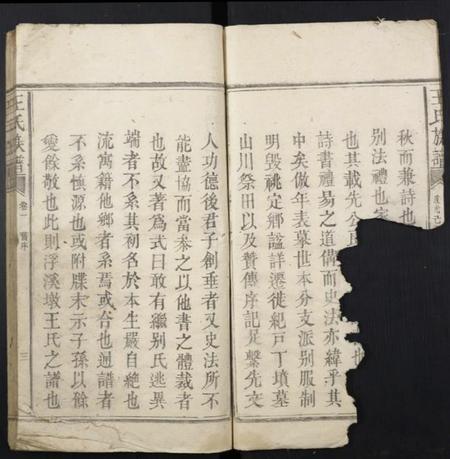 王氏族譜
秋而兼詩也
別法禮也
也其載先
詩書禮易之道備而史法亦緯乎其
中矣倣年表墓世本分支派別服制
明毀祧定鄉謚詳遷徙紀戸丁墳墓
山川祭田以及贊傳序記是繫先文
人功德後君子創垂者又史法所不
能盡協而當叅之以他書之體裁者
也故又著爲式曰敢有繼别氏逃異
端者不系其初名於本生嚴自絶也
流寓籍他鄉者系焉或合也通譜者
不系愼源也或附牒末示子孫以餘
愛餘敬也此則浮溪墩王氏之譜也
王氏族譜
卷一
舊序
三